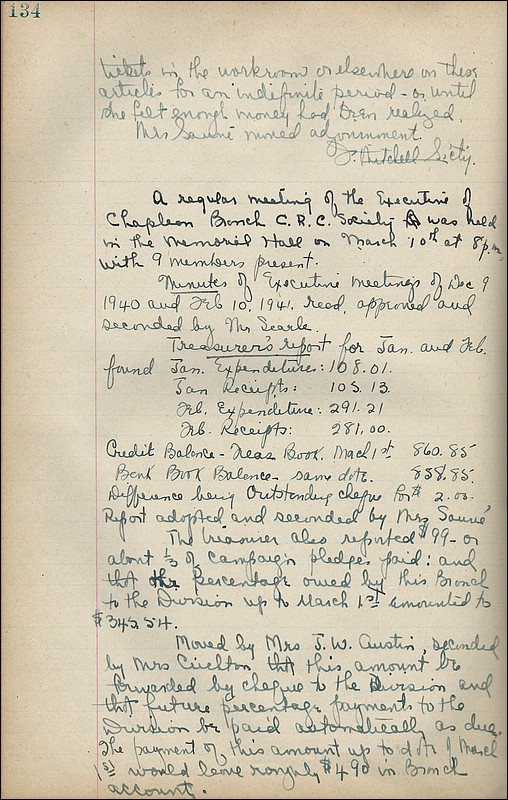 134
tickets in the workroom or elsewhere on these
articles for an indefinite period - or until
she felt enough money had been realized.
Mrs Sauvé moved adjournment.
Mitchell Sicty.
A regular meeting of the Executive of
Chapleau Branch C.R.C. Society was held
in the Memorial Hall on March 10th at 8 p.m.
with 9 members present.
Minutes of Executive meetings of Dec 9
1940 and Feb 10, 1941, read, approved and
seconded by Mr Searle.
Treasurer's report for Jan. and Feb.
found Jan. Expenditures: 108.01.
Jan Receipts: 105.13
Feb. Expenditure: 291.21
Feb. Receipts: 281.00.
Credit Balance - Treas Book, Mach 1st 860.85
Bank Book Balance - same date. 858.85.
Difference being Outstanding cheque for $ 2.00.
Report adopted and seconded by Mrs Sauvé
The treasurer also reported $99 - or
about 1/3 of campaign pledges paid: and
that the percentage owed by this Branch
to the Division up to March 1st amounted to
$345.54.
Moved by Mrs J.W. Austin, seconded
by Mrs Crichton that this amount be
forwarded by cheque to the Division and
that future percentage payments to the
Division be paid automatically as due.
The payment of this amount up to date of March
1st would leave roughly $490 in Branch
account.